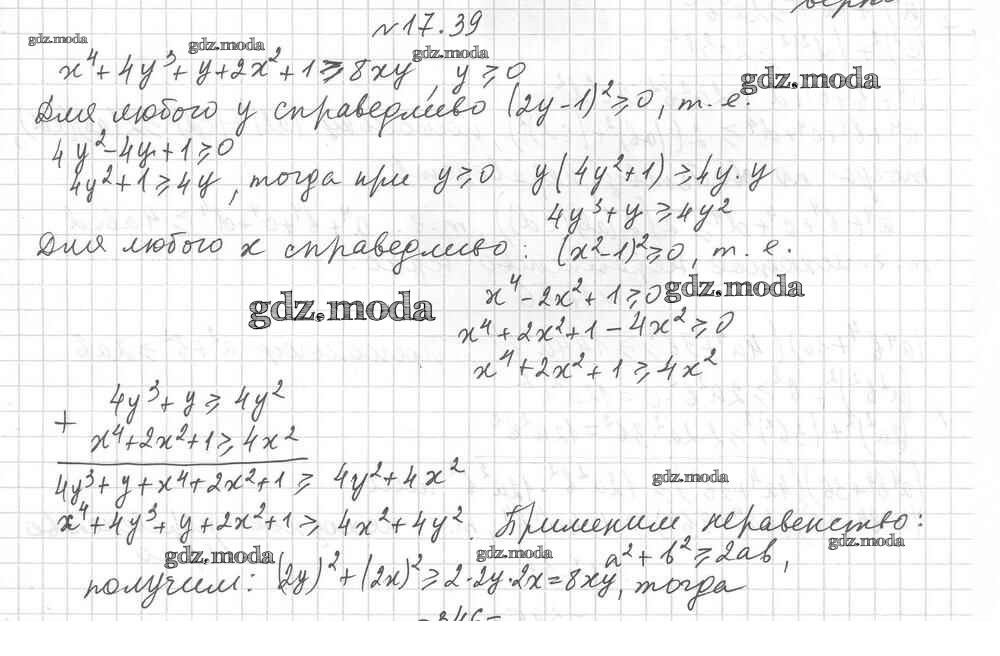 №17.39
gdz.moda
gdz.moda
x⁴+4y³+y+2x²+1≥8xy, y≥0
gdz.moda
Для любого y справедливо (2y-1)²≥0, т.е.
4y²-4y+1≥0
4y²+1≥4y, тогда при y≥0 y(4y²+1)≥4y·y
4y³+y≥4y²
Для любого x справедливо: (x²-1)²≥0, т.е.
x⁴-2x²+1≥0
gdz.moda
gdz.moda
x⁴+2x²+1-4x²≥0
x⁴+2x²+1≥4x²
4y³+y≥4y²
+
x⁴+2x²+1≥4x²
4y³+y+x⁴+2x²+1≥4y²+4x²
gdz.moda
x⁴+4y³+y+2x²+1≥4x²+4y². Применим неравенство:
gdz.moda
gdz.moda
gdz.moda
a²+b²≥2ab,
получим: (2y)²+(2x)²≥2·2y·2x=8xy, тогда